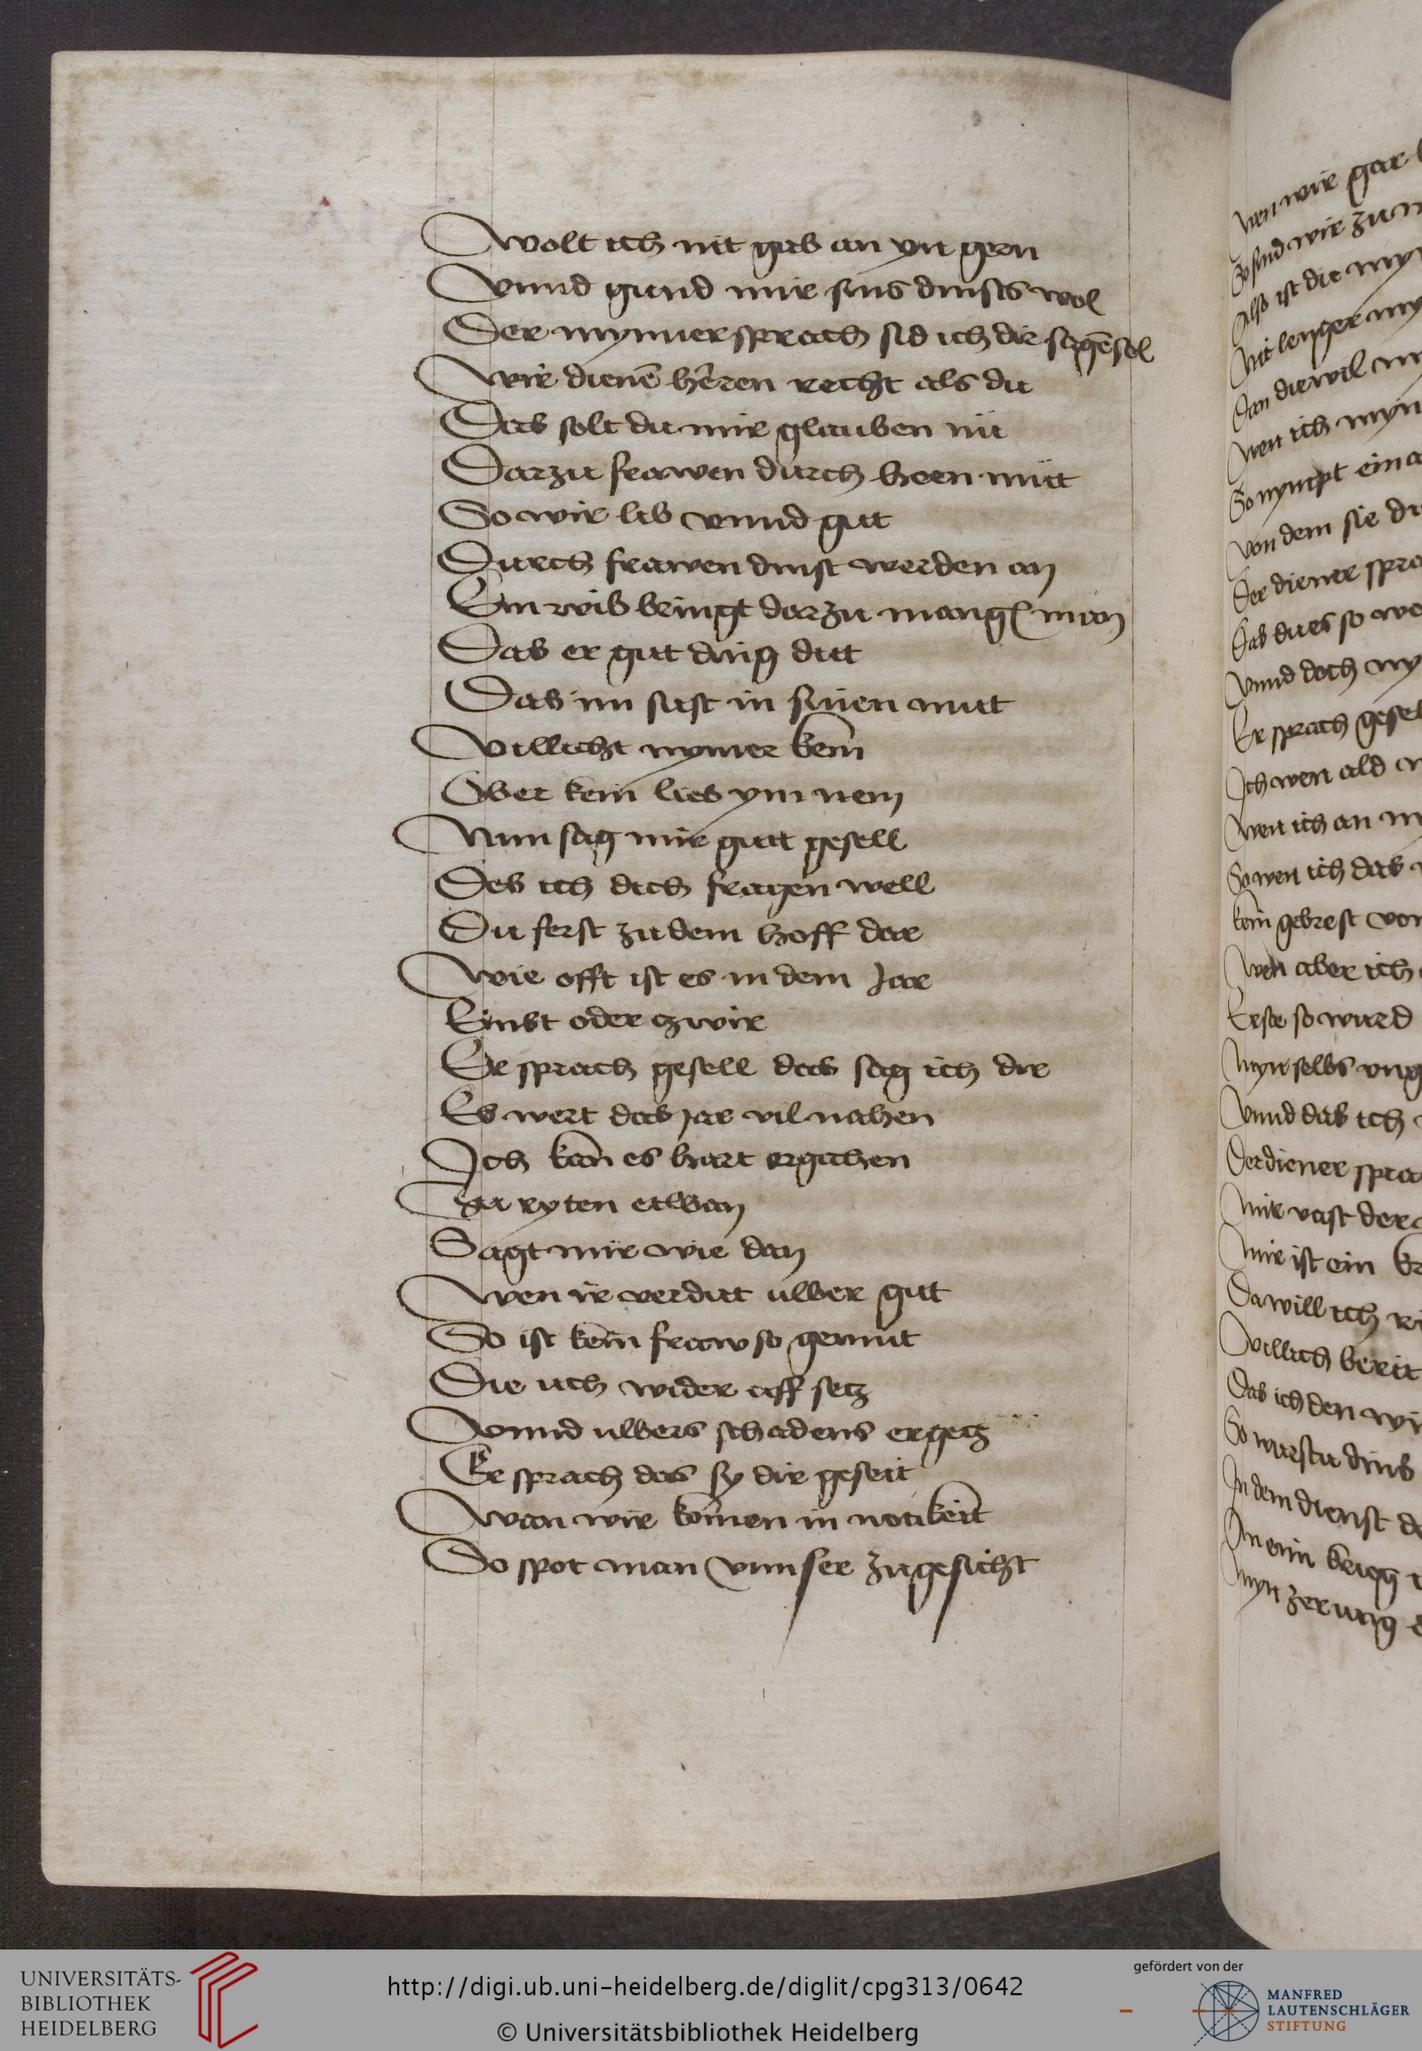 Wolt ich nit gab an yn gern
Vnnd gund mir sins dinsts wol
Der mynner sprach sid ich dir sagē sol
Wir dienē hēren recht als du
Das solt du mir glauben nu
Darzu frawen durch hoen mut
So wir lib vnnd gut
Durch frawen dinst werden an
Ein wib bringt darzu mangē man
Das er gut ding dut
Das im sust in sinen mut
Villicht nymer kem
Ober kein lieb ym nem
Nun sag mir gutt gesell
Des ich dich fragen well
Du ferst zu dem hoff dar
Wie offt ist es in dem Jar
Einst oder zwir
Er sprach gesell das sag ich dir
Es wert das jar vil nahen
Ich kan es hart ergahen
Ir ryten etwan
Sagt mir wie dan
Wen ir verdut uwer gut
So ist kein fraw so gemut
Die uch wider uff setz
Vnnd uwers schadens ergetz
Er sprach das sy dir geseit
Wan wir komen in notikeit
So spot man vnnser zugesicht
wen wir gar
So sind wir zu
Also ist die my
Nit lenger my
Dan die wil
Wen ich myn
So nympt ein
Von dem sie
Der diener spra
Das du es so we
Vnnd doch
Er sprach gesel
Ich wen ald
Wen ich an
So wen ich das
kein gebrest von
Wen aber ich
Erste so wurd
Myn selbs vng
Vnnd das ich
Der diener spra
Mir vast der
Mir ist ein
Da will ich
Willich bereit
Das ich den
So warstu dins
In dem dienst
In eim krieg
Myn zerung
UNIVERSITÄTS-
BIBLIOTHEK
HEIDELBERG
http://digi.ub.uni-heidelberg.de/diglit/cpg313/0642
© Universitätsbibliothek Heidelberg
gefördert von der
MANFRED
LAUTENSCHLÄGER
STIFTUNG